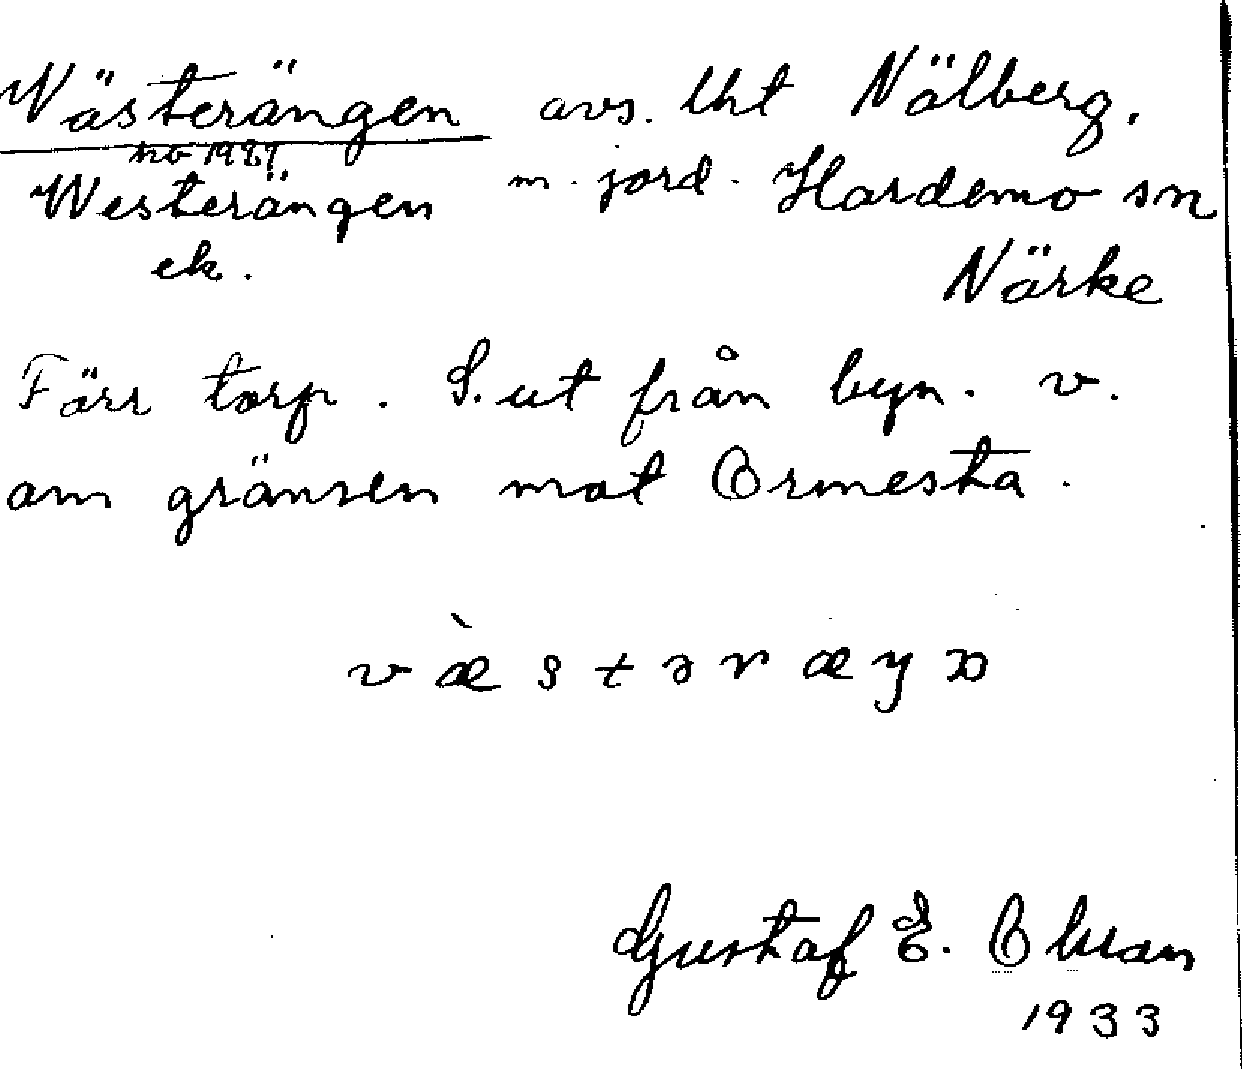 Västerängen avs. lht Nälberg.
no 1927.
Westerängen m. jord. Hardemo sn
ek. Närke
Förr torp. S. ut från byn. v.
om gränsen mot Ormesta.
v æ̀ s t ə r æ ŋ
Gustaf E. Olsson
1933